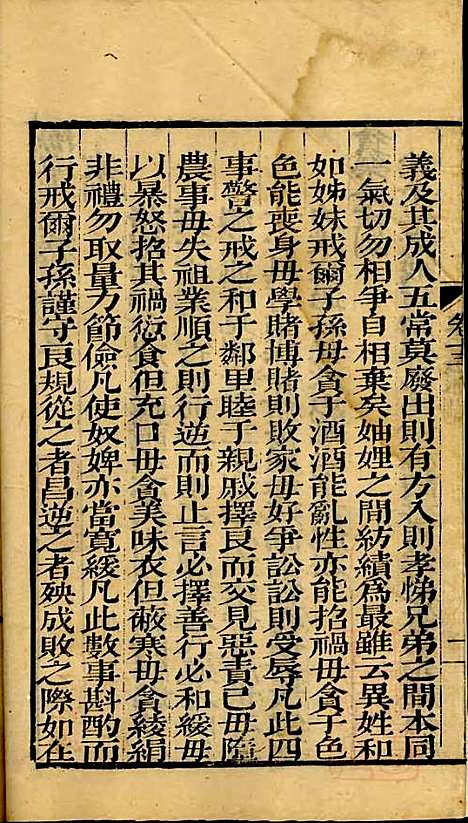 義及其成人五常莫廢出則有方入則孝悌兄弟之間本同
一氣切勿相爭自相棄矣妯娌之間紡績為最雖云異姓和
如姊妹戒爾子孫毋貪于酒酒能亂性亦能招禍毋貪于色
色能喪身毋學賭博賭則敗家毋好爭訟訟則受辱凡此四
事警之戒之和于鄰里睦于親戚擇良而交見惡責己毋隳
農事毋失祖業順之則行逆而則止言必擇善行必和緩毋
以暴怒招其禍愆食但充口毋貪美味衣但蔽寒毋貪綾絹
非禮勿取量力節儉凡使奴婢亦當寬緩凡此數事斟酌而
行戒爾子孫謹守良規從之者昌逆之者殃成敗之際如在
卷十三